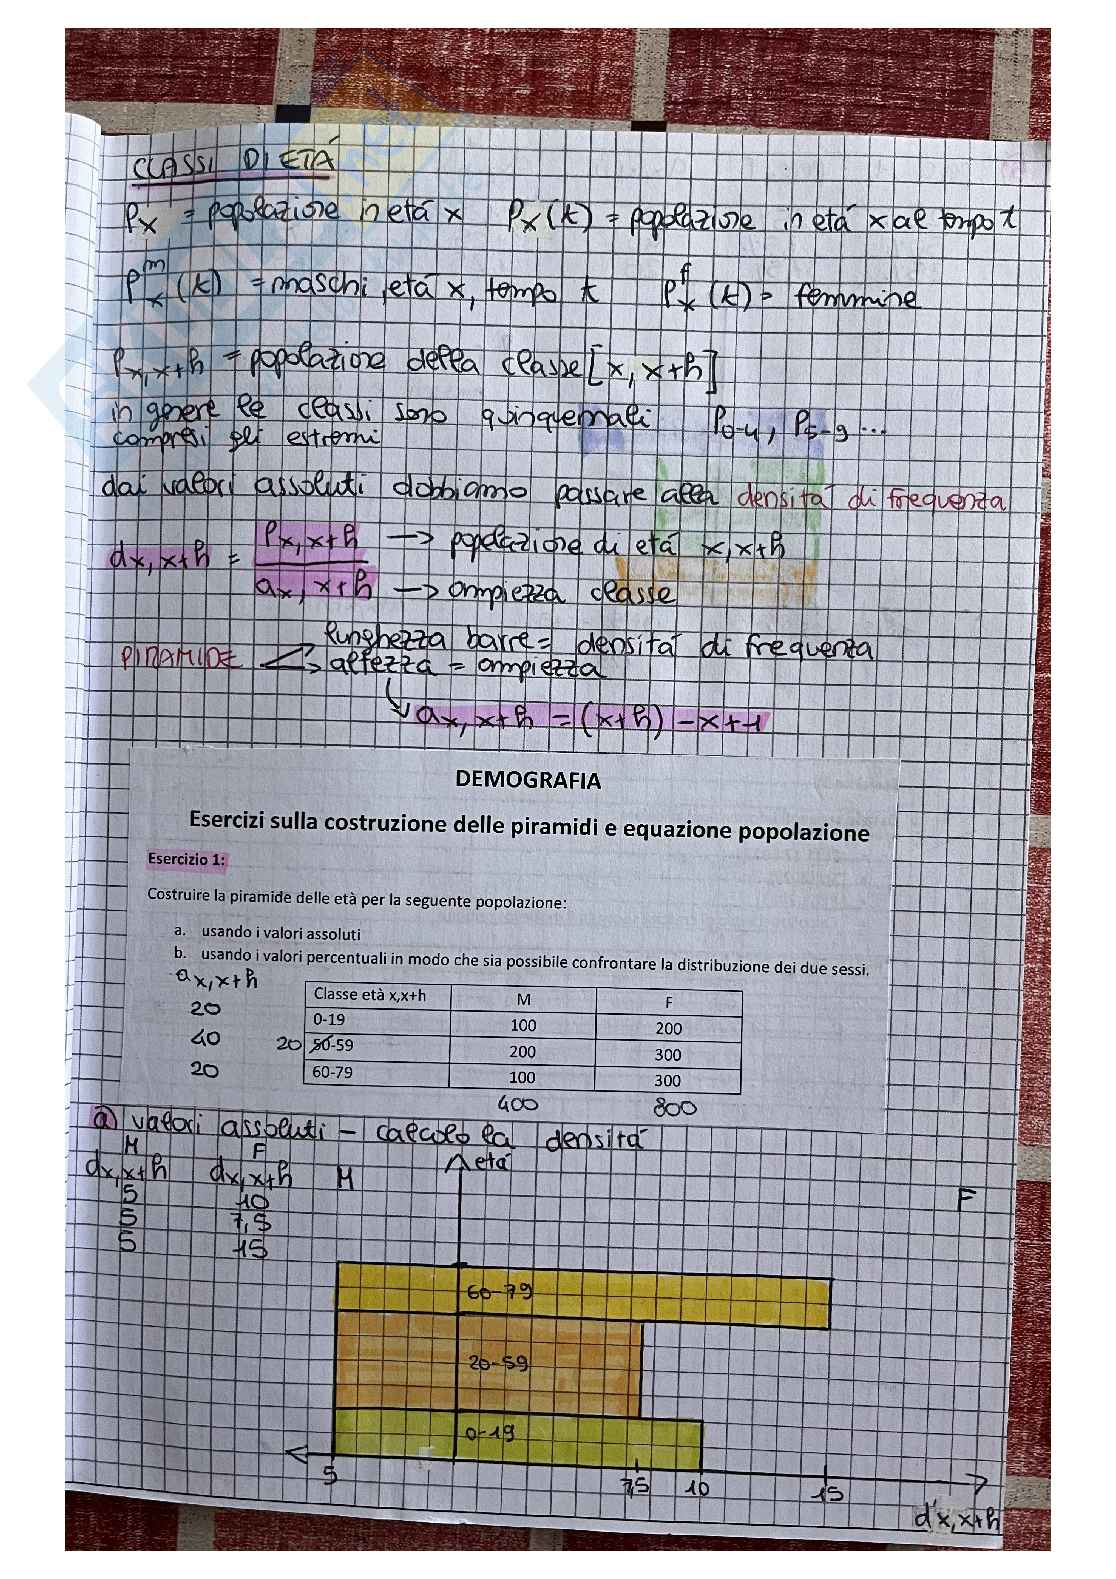 CLASSI DI ETÁ
Px = popolazione in etá x Px(t) = popolazione in etá x al tempo t
P^m x (t) = maschi, etá x, tempo t P^f x (t) = femmine
Px,x+h = popolazione della classe [x, x+h]
in genere le classi sono quinquennali P0-4, P5-9 ...
compresi gli estremi
dai valori assoluti dobbiamo passare alla densitá di frequenza
dx,x+h = Px,x+h → popolazione di etá x,x+h
ax,x+h → ampiezza classe
PIRAMIDE lunghezza barre = densitá di frequenza
altezza = ampiezza
ax,x+h = (x+h) -x+1
DEMOGRAFIA
Esercizi sulla costruzione delle piramidi e equazione popolazione
Esercizio 1:
Costruire la piramide delle età per la seguente popolazione:
a. usando i valori assoluti
b. usando i valori percentuali in modo che sia possibile confrontare la distribuzione dei due sessi.
ax,x+h Classe età x,x+h M F
20 0-19 100 200
40 20 50-59 200 300
20 60-79 100 300
400 800
a) valori assoluti - calcolo la densitá
M F
dx,x+h dx,x+h M età F
5 10
5 7,5
5 15
60-79
20-59
0-19
5 7,5 10 15
dx,x+h